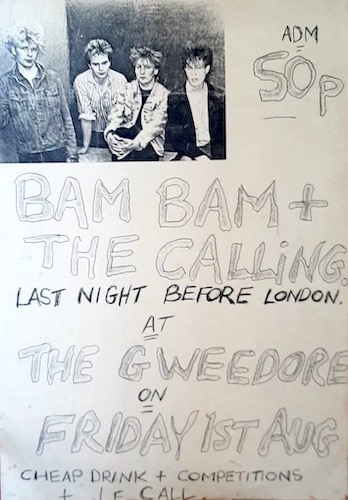 ADM
50p
BAM BAM +
THE CALLING.
LAST NIGHT BEFORE LONDON.
AT
THE GWEEDORE
ON
FRIDAY 1ST AUG
CHEAP DRINK + COMPETITIONS
+ CALL